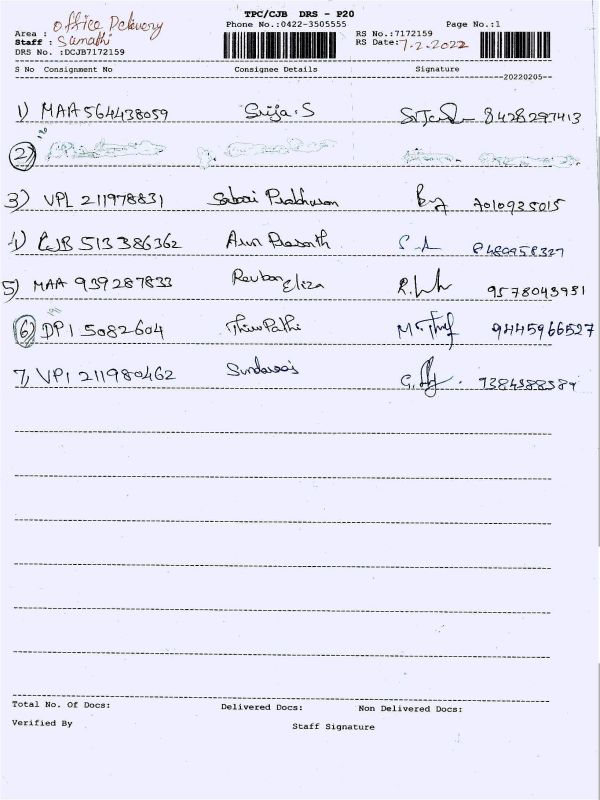 TPC/CJB DRS - P20
Phone No.:0422-3505555 Page No.:1
Area : office Delivery
RS No.:7172159
Staff : Sumathi
RS Date: 7-2-2022
DRS No. :DCJB7172159
S No Consignment No Consignee Details Signature
20220205--
1) MAA 564438059 Sujja.S 8428297413
2)
3) VPL 211978831 Sabari Prabhuram 7010935015
4) CJB 513386362 Arun Prasanth
5) MAA 939287833 Reuban Eliza 9578043951
6) DPI 5082604 ThiruPathi 9445966527
7) VPI 211980462 Sundarraj
Total No. Of Docs: Delivered Docs: Non Delivered Docs:
Verified By Staff Signature